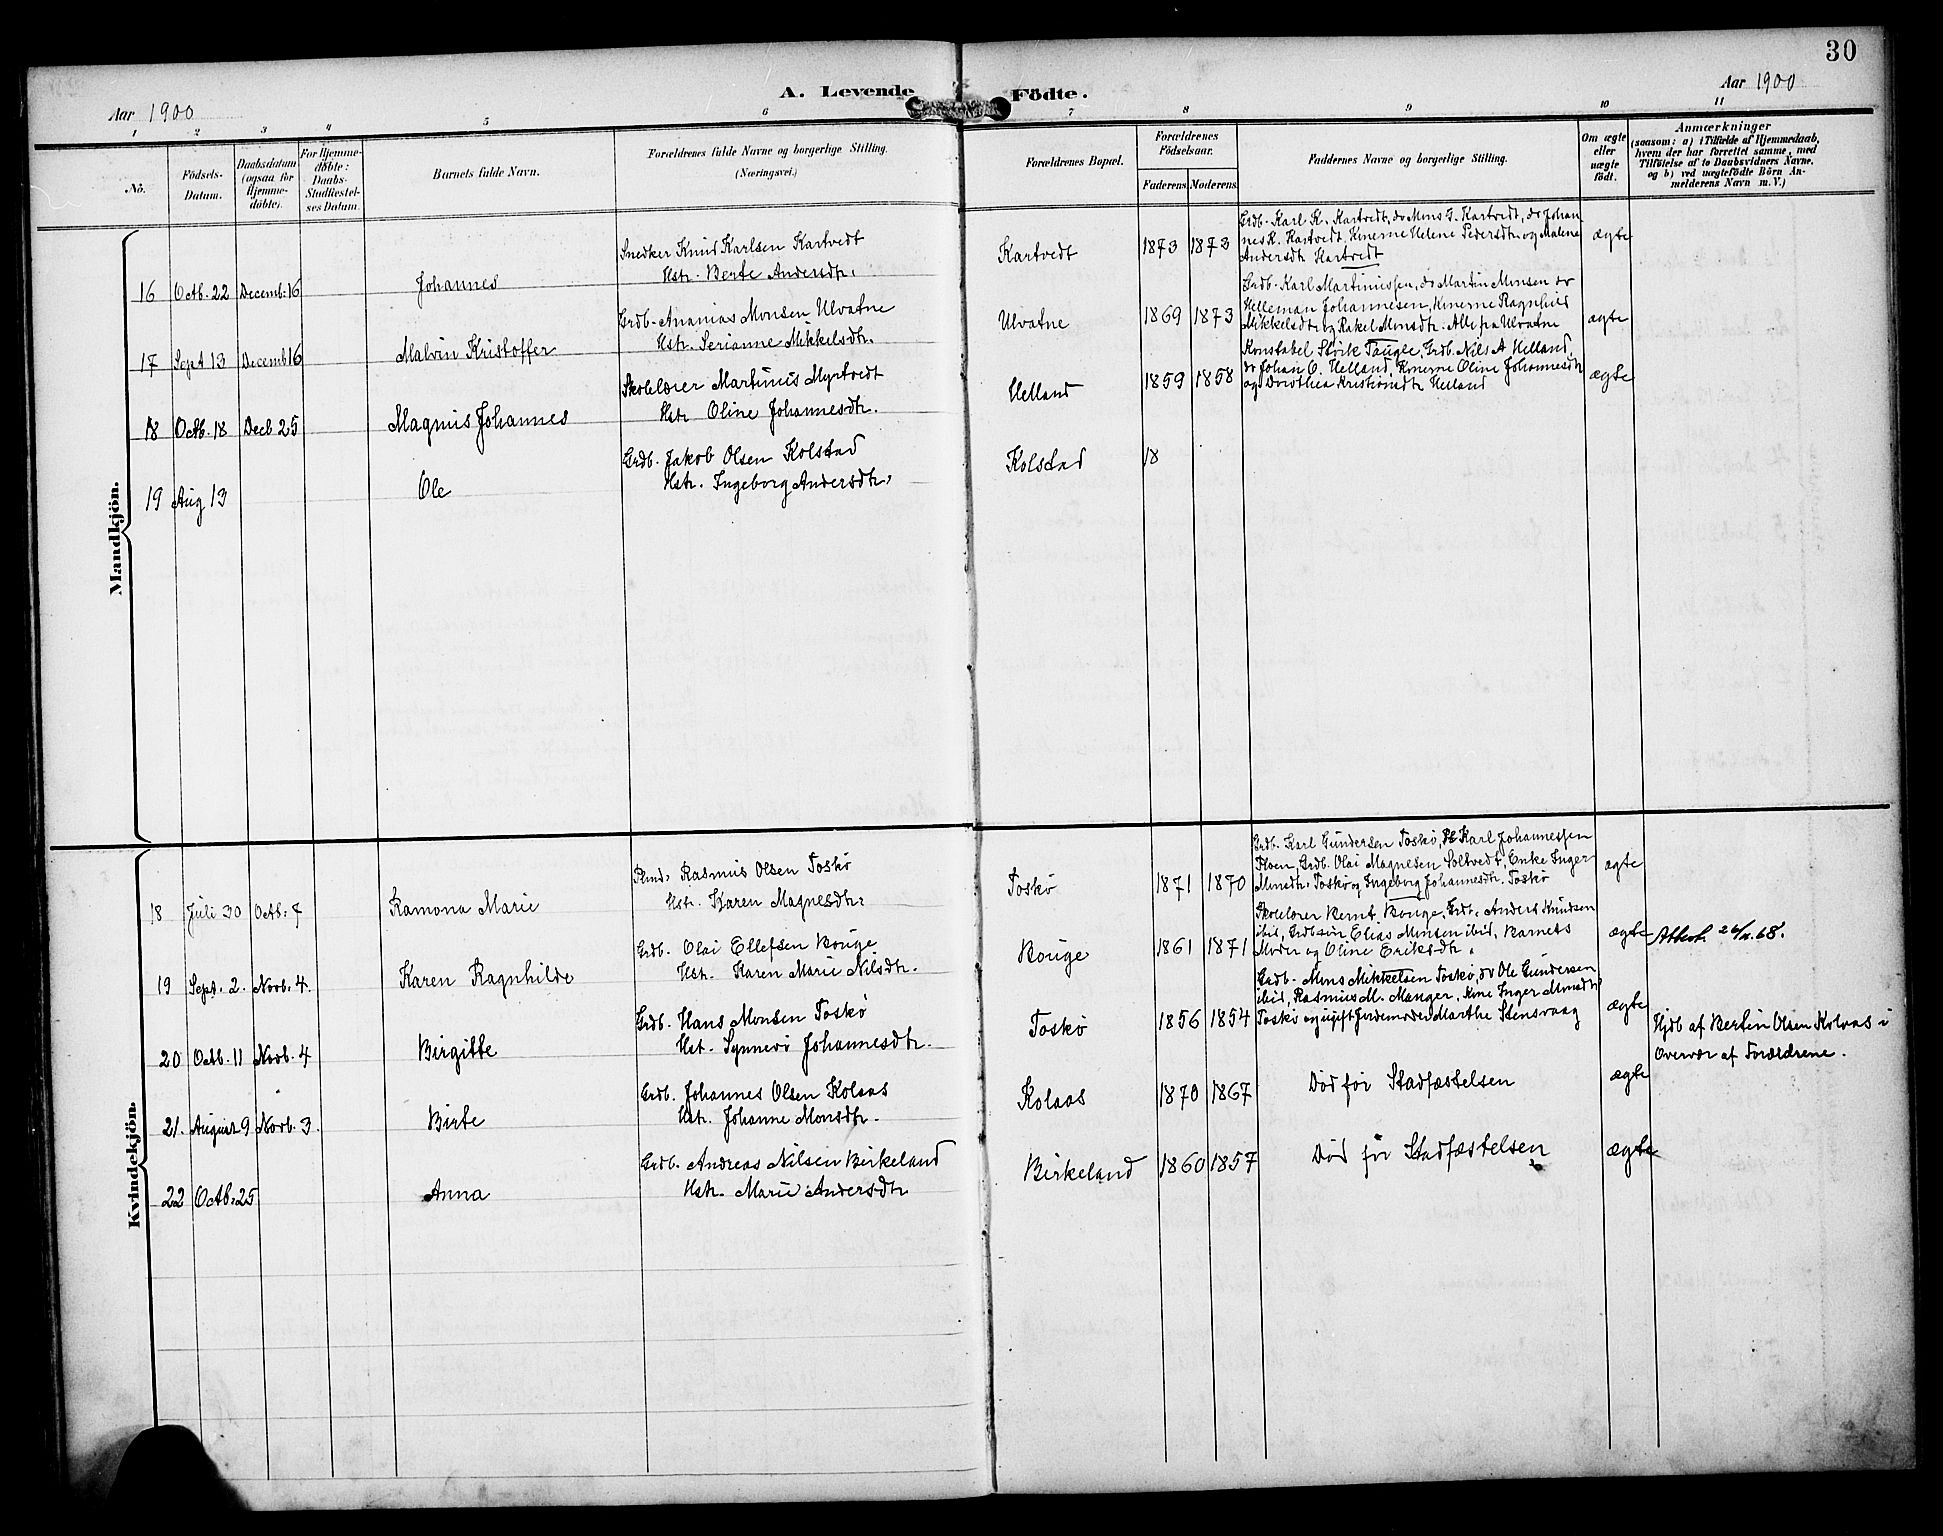 30
Aar 1900
A. Levende Födte.
Aar 1900
1 2 3 4 5 6 7 8 9 10 11
No.
Födsels-
Datum.
Daabsdatum
(ogsaa for
Hjemme-
døbte).
For Hjemme-
döbte:
Daabs-
Stadfæstel-
ses Datum.
Barnets fulde Navn.
Forældrenes fulde Navne og borgerlige Stilling.
(Næringsvei.)
Forældrenes Bopæl.
Forældrenes
Födselsaar.
Faderens Moderens
Faddernes Navne og borgerlige Stilling.
Om ægte
eller
uægte
födt.
Anmærkninger
(saasom: a) i Tilfælde af Hjemmedaab,
hvem der har forrettet samme, med
Tilföielse af to Daabsvidners Navne,
og b) ved uægtefödte Börn An-
melderens Navn m. V.)
Mandkjön.
16 Octb. 22 Decemb. 16 Johannes
Snedker Knud Karlsen Kartvedt
Hstr. Berte Andersdtr.
Kartvedt 1873 1873
Grdb. Karl K. Kartvedt, do Mons G. Kartvedt, do Johan
nes K. Kartvedt, Konerne Helene Pedersdtr. og Malene
Andersdtr Kartvedt
ægte
17 Sept 13 Decemb 16 Malvin Kristoffer
Grdb. Ananias Monsen Ulvatne
Hstr. Serianne Mikkelsdtr.
Ulvatne 1869 1873
Grdb. Karl Martinussen, do Martin Monsen do
Helleman Johannesen, Konerne Ragnhild
Mikkelsdtr og Rakel Monsdtr. Alle fra Ulvatne
ægte
18 Octb. 18 Decb 25 Magnus Johannes
Skolelærer Martinus Myrtvedt
Hstr Oline Johannesdtr.
Helland 1859 1858
Konstabel Størk Taugle, Grdb. Nils A Helland,
do Johan O. Helland, Konerne Oline Johannesdtr
og Dorothea Kristiansdtr Helland
ægte
19 Aug 13 Ole
Grdb. Jakob Olsen Kolstad
Hstr. Ingeborg Andersdtr.
Kolstad 18
Kvindekjön.
18 Juli 30 Octb. 7 Ramona Marie
Rasmus Olsen Toskø
Hstr. Karen Magnesdtr.
Toskø 1871 1870
Grdb. Karl Gundersen Toskø, Karl Johannessen
Floen, Grdb. Olai Magnesen Soltvedt, Enke Inger
Monsdtr. Toskø og Ingeborg Johannesdtr. Toskø
ægte
19 Sept. 2. Novb. 4. Karen Ragnhilde
Grdb. Olai Ellefsen Bouge
Hst. Karen Marie Nilsdtr.
Bouge 1861 1871
Skolelærer Bernt Bouge, Grdb. Anders Knudsen
ibid, Grdbsøn Elias Monsen ibid, Barnets
Moder og Oline Eriksdtr.
ægte
20 Octb. 11 Novb. 4 Birgitte
Grdb. Hans Monsen Toskø
Hst. Synnevo Johannesdtr.
Toskø 1856 1854
Grdb. Mons Mikkelsen Toskø, do Ole Gundersen
ibid, Rasmus M. Manger, Kone Inger Monsdtr
Toskø og ugift Jordemoder Marthe Stensvaag
ægte
21. August 9 Novb. 3. Birte
Grdb. Johannes Olsen Kolaas
Hst. Johanne Monsdtr.
Kolaas 1870 1867
Død før Stadfæstelsen
ægte
Hjdb af Bertin Olsen Kolaas i
Overvær af Forældrene.
22 Octb. 25 Anna
Grdb. Andreas Nilsen Birkeland
Hstr. Marie Andersdtr
Birkeland 1860 1857
Død før Stadfæstelsen
ægte